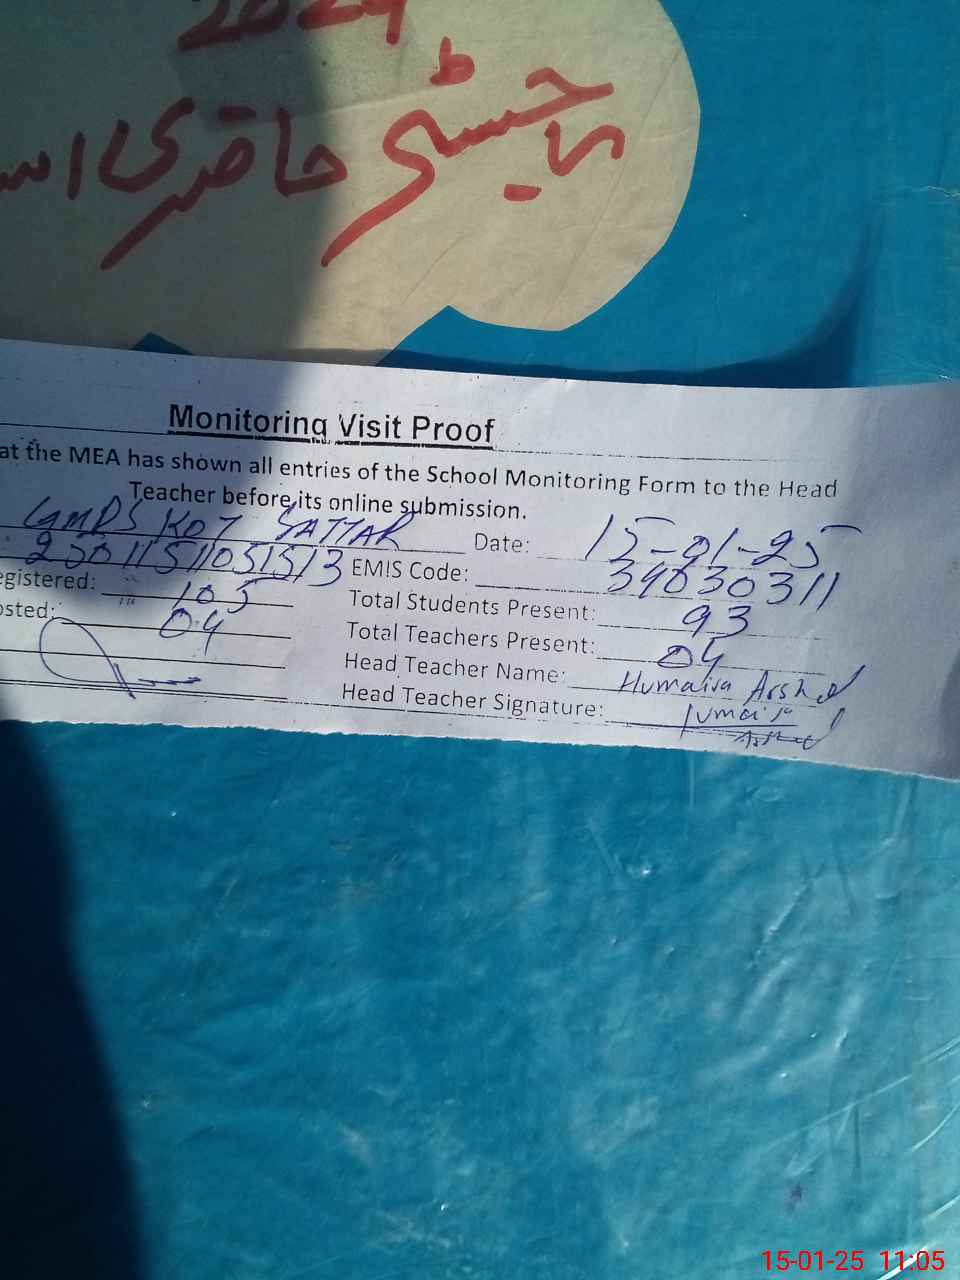 2024
رجسٹر حاضری
Monitoring Visit Proof
at the MEA has shown all entries of the School Monitoring Form to the Head
Teacher before its online submission.
GMPS KOT SATTAR Date: 15-01-25
25011511051513 EMIS Code: 39030311
egistered: 105 Total Students Present: 93
osted: 04 Total Teachers Present: 04
Head Teacher Name: Humaira Arshad
Head Teacher Signature: Humaira
Arshad
15-01-25 11:05